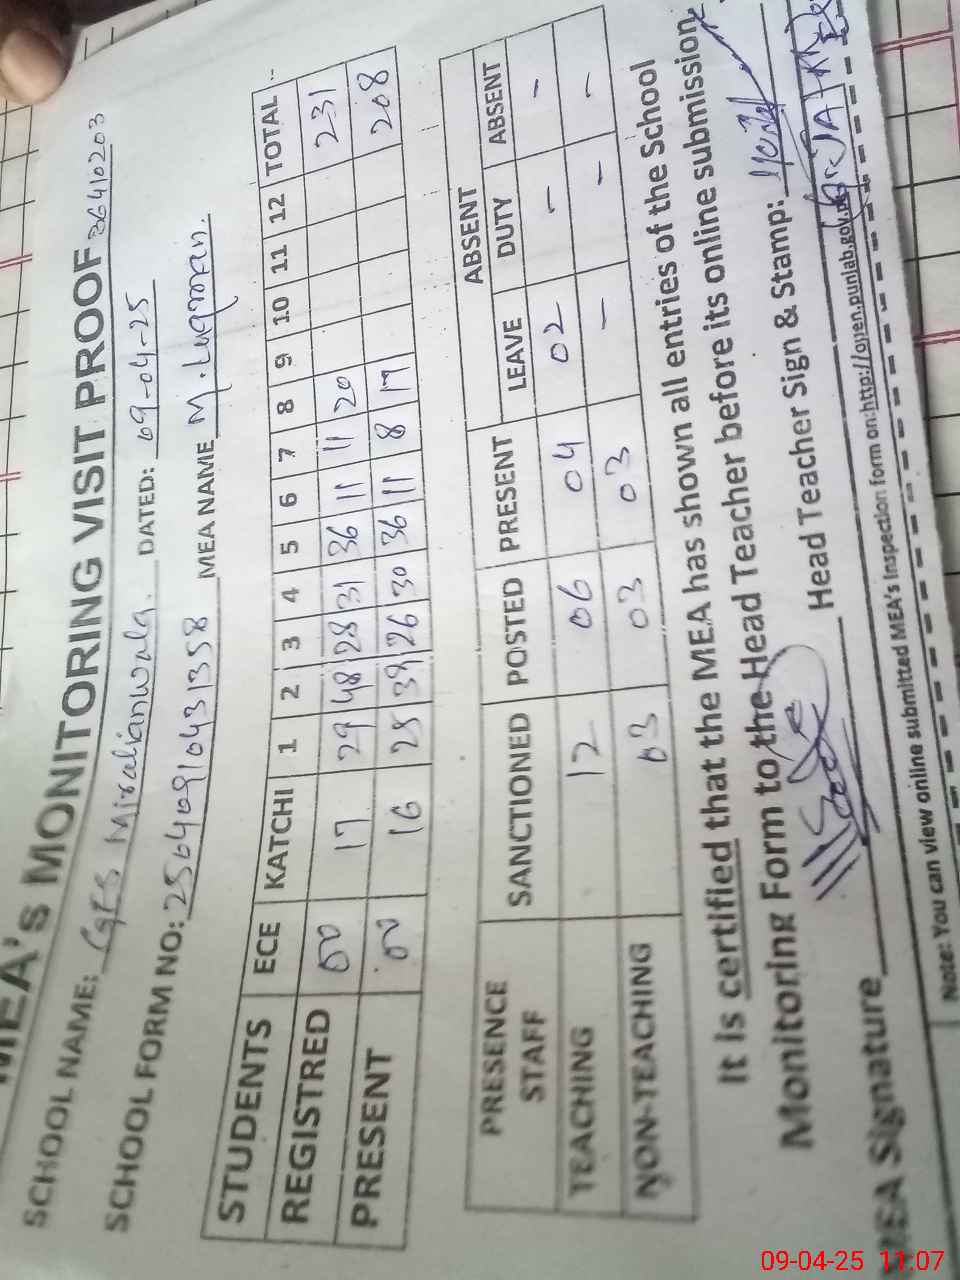 MEA's MONITORING VISIT PROOF 36410203
SCHOOL NAME: GGES Miralianwala. DATED: 09-04-25
SCHOOL FORM NO: 25640910431358 MEA NAME M. Luqman.
STUDENTS ECE KATCHI 1 2 3 4 5 6 7 8 9 10 11 12 TOTAL
REGISTRED 00 17 29 48 28 31 36 11 11 20 231
PRESENT 00 16 25 39 26 30 36 11 8 17 208
PRESENCE STAFF SANCTIONED POSTED PRESENT ABSENT
LEAVE DUTY ABSENT
TEACHING 12 06 04 02 - -
NON-TEACHING 03 03 03 - - -
It is certified that the MEA has shown all entries of the School
Monitoring Form to the Head Teacher before its online submission
MEA Signature Head Teacher Sign & Stamp:
Note: You can view online submitted MEA's Inspection form on:http://open.punjab.gov.pk
09-04-25 11:07